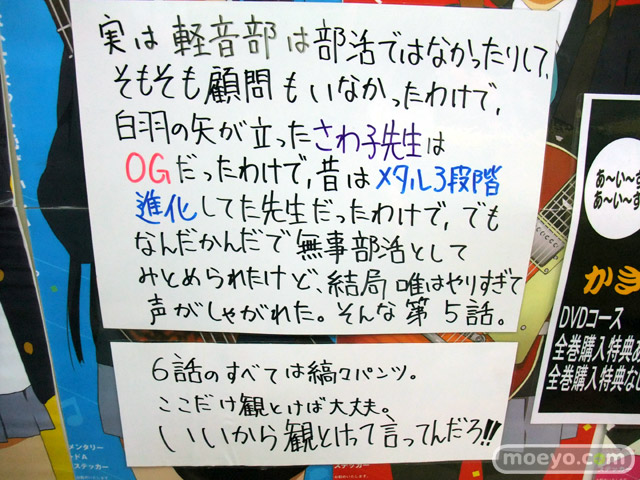 実は軽音部は部活ではなかったりして、
そもそも顧問もいなかったわけで、
白羽の矢が立ったさわ子先生は
OGだったわけで、昔はメタル3段階
進化してた先生だったわけで、でも
なんだかんだで無事部活として
みとめられたけど、結局唯はやりすぎて
声がしゃがれた。そんな第5話。
6話のすべては縞々パンツ。
ここだけ観とけば大丈夫。
いいから観とけって言ってんだろ!!
あ〜い〜す
あ〜い〜す
かき
DVDコース
全巻購入特典あ
全巻購入特典な
メンタリー
ードA
ステッカー
ステッカー
moeyo.com